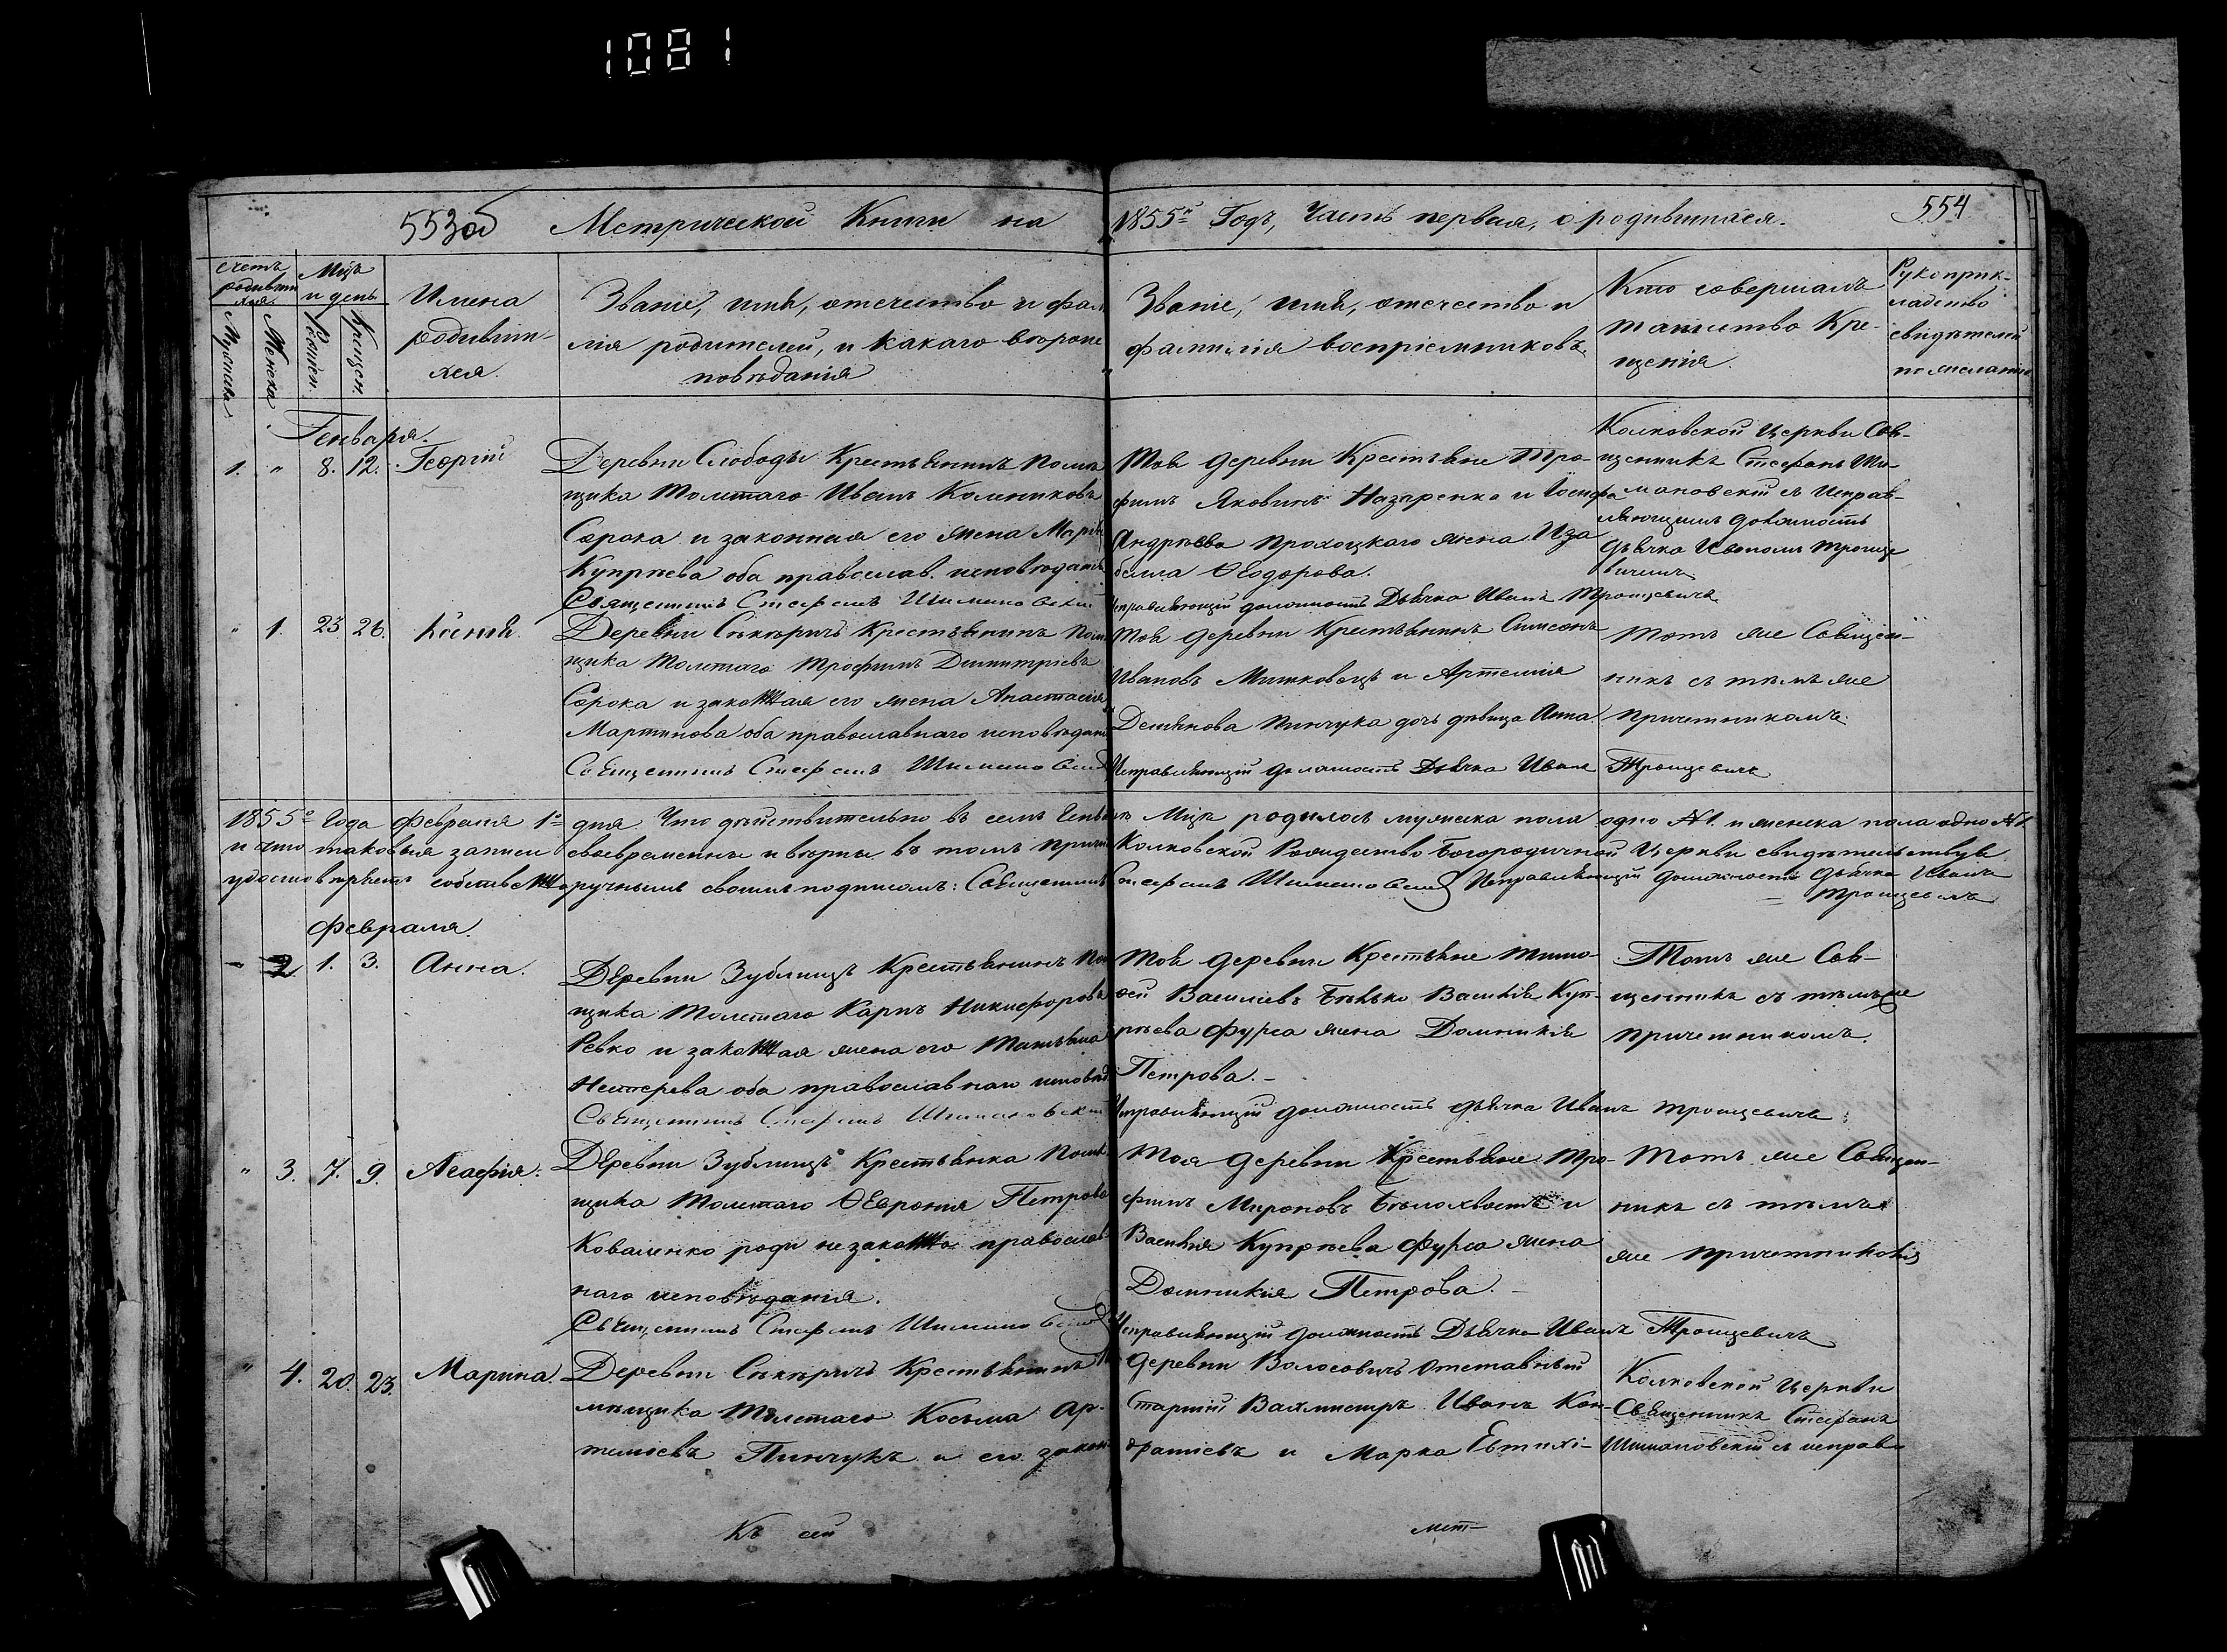 1081
553об Метрической Книги на 1855й Годъ, Часть первая, о родившихся. 554
счетъ родившихся
Мужеска
Женска
Мцъ и день
Рожден.
Крещен.
Имена
родивши-
хся.
Званіе, имя, отечество и фами
лія родителей, и какаго вѣроис
повѣданія
Званіе, имя, отечество и
фамилія воспріемниковъ
Кто совершалъ
таинство Кре-
щенія.
Рукоприк-
ладство
свидѣтелей
по желанію
Генваря.
1. " 8. 12. Георгій
Деревни Слободы Крестьянинъ помѣ
щика Толстаго Иванъ
Сорока и законная его жена Марія
Купрѣева оба православ. исповѣданія
Священникъ Стефанъ Шимановскій
Тоя деревни Крестьяне Тро-
фимъ Яковинъ Назаренко и Іосифа
Андрѣева жена Иза
белла Ѳеодорова.
Исправляющій должность Дьячка Иванъ Троицевичъ
Колковской Церкви Свя-
щенникъ Стефанъ Ши-
мановскій съ Исправ-
ляющимъ должность
Дьячка Иваномъ Троице
вичемъ
" 1. 25 26. Ксенія.
Деревни Крестьянинъ помѣ
щика Толстаго Трофимъ Димитріевъ
Сорока и законная его жена Анастасія
Мартинова оба православнаго исповѣдан
Священникъ Стефанъ Шимановскій
Тоя деревни Крестьянинъ Симеонъ
Ивановъ и Артемія
Демянова Пинчука дочь дѣвица Анна
Исправляющій должность Дьячка Иванъ Троицевичъ
Тотъ же Священ-
никъ съ тѣмъ же
причетникомъ.
1855го Года Февраля 1го дня. Что дѣйствительно въ семъ Генварѣ Мцѣ родилось мужеска пола одно №1. и женска пола одно №1
и что таковыя записи своевременны и вѣрны въ томъ причтъ Колковской Рождество Богородичной Церкви свидѣтельствуя
удостовѣряетъ собственноручнымъ своимъ подписомъ: Священникъ Стефанъ Шимановскій Исправляющій должность Дьячка Иванъ
Троицевичъ
Февраля.
- 2 1. 3. Анна.
Деревни Зублищъ Крестьянинъ По
щика Толстаго Карпъ Никифоровъ
Ревко и законная жена его Татьяна
Нестерева оба православнаго исповѣд
Священникъ Стефанъ Шимановскій
Тоя деревни Крестьяне Тимо-
ѳей Василіевъ Василія Куп-
рѣева Фурса жена Домникія
Петрова.-
Исправляющій должность дьячка Иванъ Троицевичъ
Тотъ же Свя-
щенникъ съ тѣмъ же
причетникомъ.
" 3. 7. 9. Агафія.
Деревни Зублищъ Крестьянка Помѣ
щика Толстаго Ѳевронія Петрова
Коваленко роди незаконно православ-
наго исповѣданія.
Священникъ Стефанъ Шимановскій
Тоя деревни Крестьяне Тро-
фимъ Мироновъ Бѣлохвостъ и
Василія Купрѣева Фурса жена
Домникія Петрова.-
Исправляющій должность Дьячка Иванъ Троицевичъ
Тотъ же Священ-
никъ съ тѣмъ
же причетникомъ
" 4. 20. 23. Марина.
Деревни Крестьянинъ По
мѣщика Толстаго Косьма Ар-
темовъ Пинчукъ и его закон
Деревни Волосовичъ Отставный
Старшій Вахмистръ Иванъ Кон-
дратіевъ и Марка Евтихі-
Колковской Церкви
Священникъ Стефанъ
Шимановскій съ исправ
Къ сей мет-